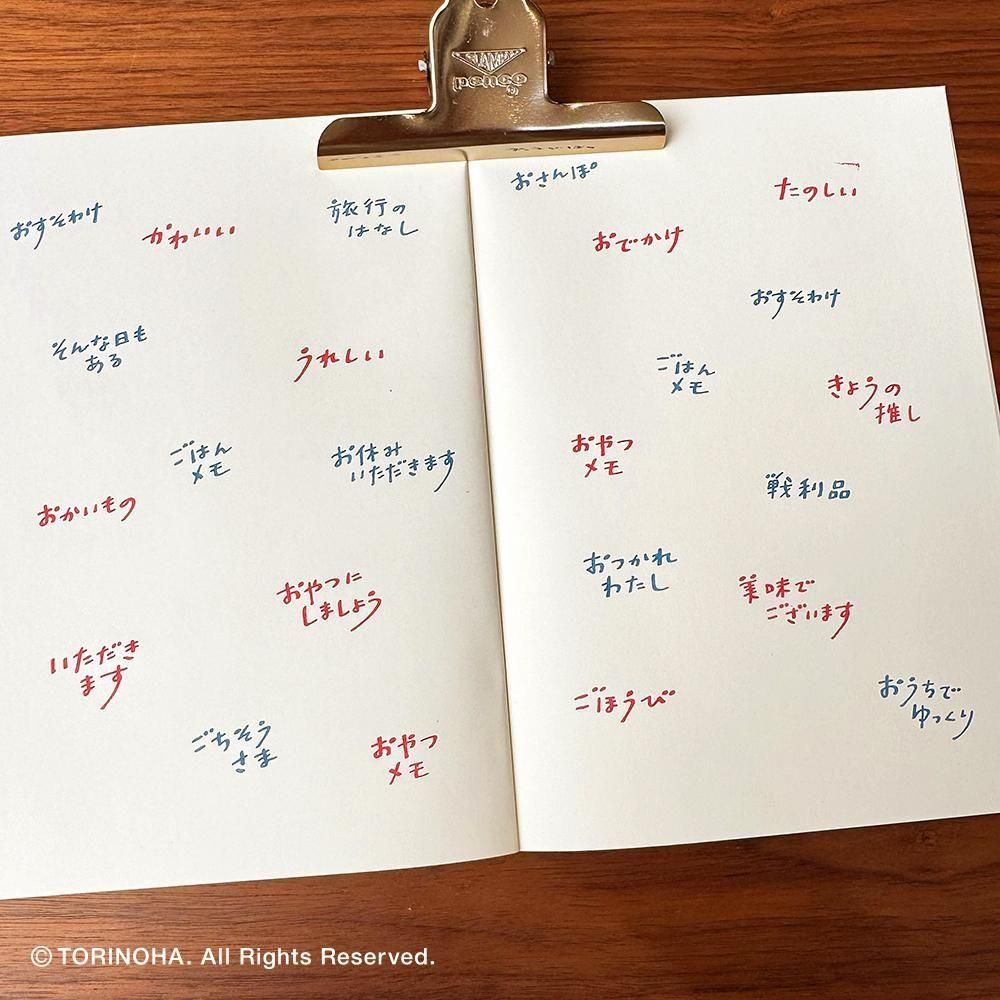 PENCO
おすそわけ
かわいい
旅行の
はなし
そんな日も
ある
うれしい
ごはん
メモ
お休み
いただきます
おかいもの
おやつに
しましょう
いただき
ます
ごちそう
さま
おやつ
メモ
おさんぽ
たのしい
おでかけ
おすそわけ
ごはん
メモ
きょうの
推し
おやつ
メモ
戦利品
おつかれ
わたし
美味で
ございます
ごほうび
おうちで
ゆっくり
© TORINOHA. All Rights Reserved.